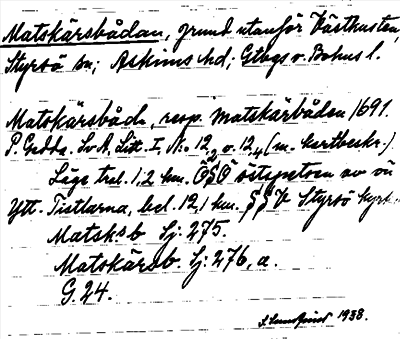 Matskärsbådan, grund utanför Västkusten,
Styrsö sn; Askims hd; Gtbgs o. Bohus l.
Matskärsbåde, resp. Matskärbåden 1691.
P. Gedda. Sv A, Litt. I, No 12,2 o. 12,4 (m. kartbeskr.)
Läge tral. 1,2 km. ÖSÖ östspetsen av ön
Ytt. Tistlarna, bel. 12,1 km. SSV Styrsö kyrk..
Matsk:s b Sj: 275.
Matskärsb. Sj: 276, a.
G. 24.
1938.